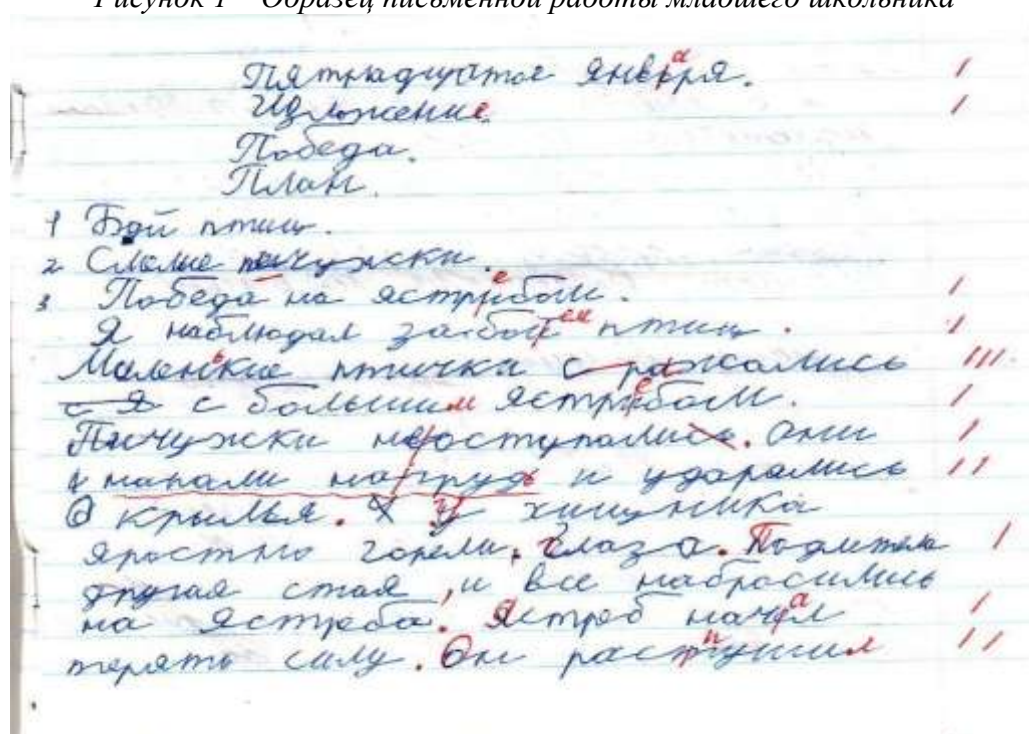 Рисунок 1 – Образец письменной работы младшего школьника
Пятнадцатое января.
Изложение.
Победа.
План.
1 Бой птиц.
2 Смелые пичужки.
3 Победа на ястрибом.
Я наблюдал за бой птиц.
Маленькие птички с ражались
с большим ястрибом.
Пичужки неоступались. Они
напали нагрудь и ударались
о крылья. У хищника
яростно горели. глаза. Подлитела
другая стая, и все набросились
на ястреба. Ястреб начал
терять силу. Он